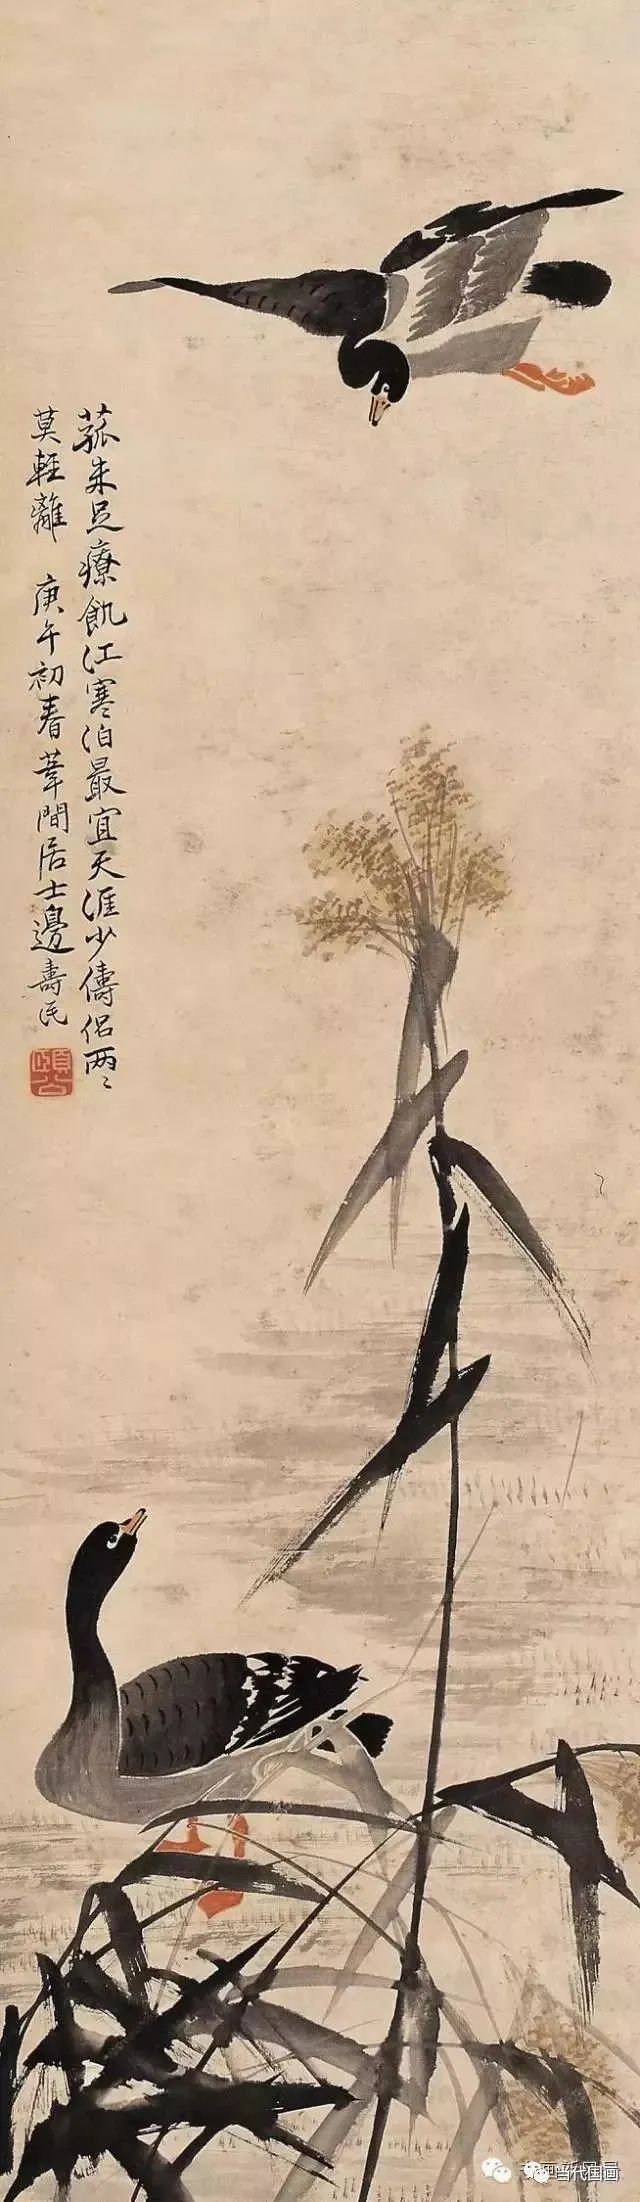 菰米足療飢江寒泊最宜天涯少儔侣两〻
莫輕離 庚午初春葦間居士邊壽民
頤公
当代国画